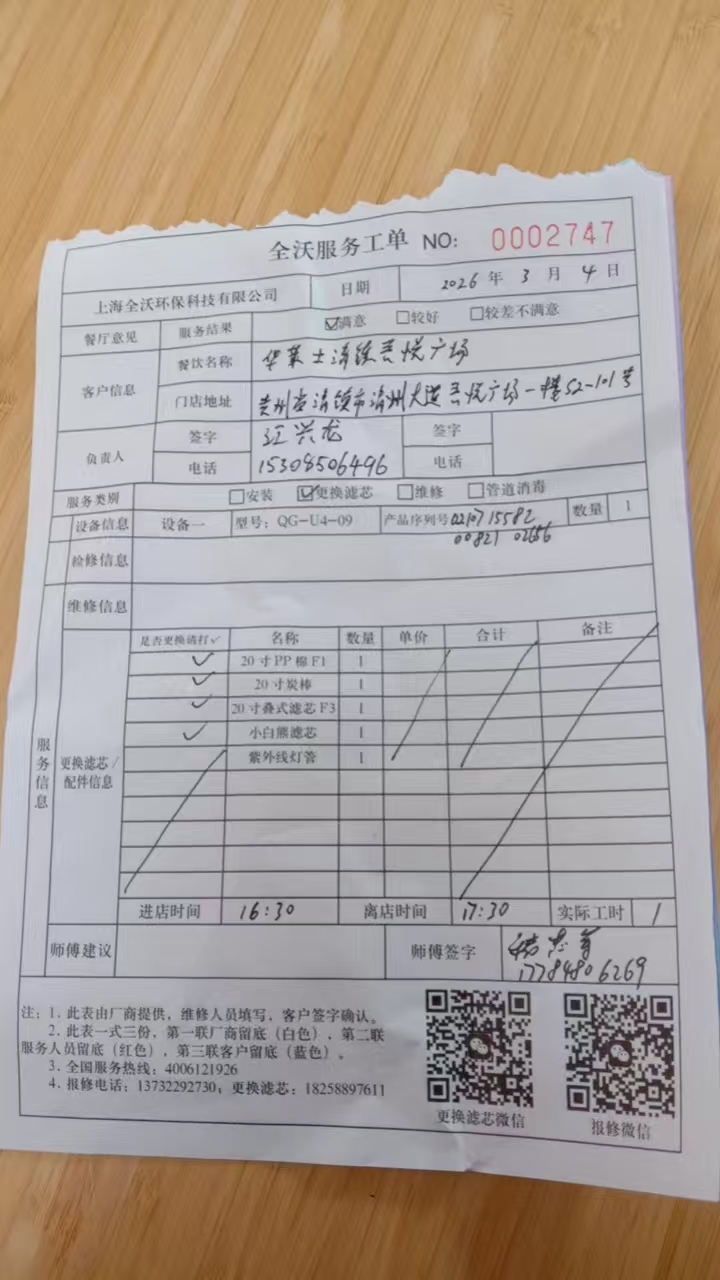 全沃服务工单 NO: 0002747
上海全沃环保科技有限公司 日期 2026年 3月 4日
餐厅意见 服务结果 ☑满意 □较好 □较差不满意
客户信息 餐饮名称 华莱士清镇吾悦广场
门店地址 贵州省清镇市清州大道吾悦广场一楼S2-101号
负责人 签字 江兴龙 签字
电话 15308506496 电话
服务类别 □安装 ☑更换滤芯 □维修 □管道消毒
设备信息 设备一 型号：QG-U4-09 产品序列号 0210715582 数量 1
00821 02656
检修信息
维修信息
服务信息
更换滤芯/配件信息
是否更换请打✓ 名称 数量 单价 合计 备注
✓ 20寸PP棉F1 1
✓ 20寸炭棒 1
✓ 20寸叠式滤芯F3 1
✓ 小白熊滤芯 1
紫外线灯管 1
进店时间 16:30 离店时间 17:30 实际工时 1
师傅建议 师傅签字
17784806269
注：1. 此表由厂商提供，维修人员填写，客户签字确认。
2. 此表一式三份，第一联厂商留底（白色），第二联
服务人员留底（红色），第三联客户留底（蓝色）。
3. 全国服务热线：4006121926
4. 报修电话：13732292730；更换滤芯：18258897611
更换滤芯微信 报修微信